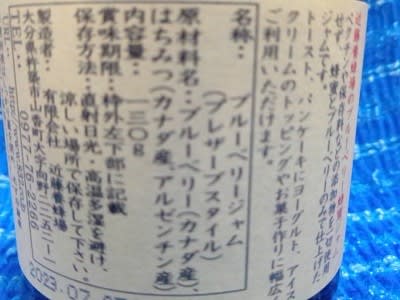 ペクチンや保存料などの添加物を一切使用
せず、蜂蜜とブルーベリーのみで仕上げた
ジャムです。
トースト、パンケーキにヨーグルト、アイス
クリームのトッピングやお菓子作りに幅広
ご利用いただけます。
名称：ブルーベリージャム
（プレザーブスタイル）
原材料名：ブルーベリー（カナダ産）、
はちみつ（カナダ産、アルゼンチン産）
内容量：一三〇g
賞味期限：枠外左下部に記載
保存方法：直射日光・高温多湿を避け、
涼しい場所で保存して下さい。
製造者：有限会社 近藤養蜂場
大分県杵築市山香町大字
TEL：
2023.07.